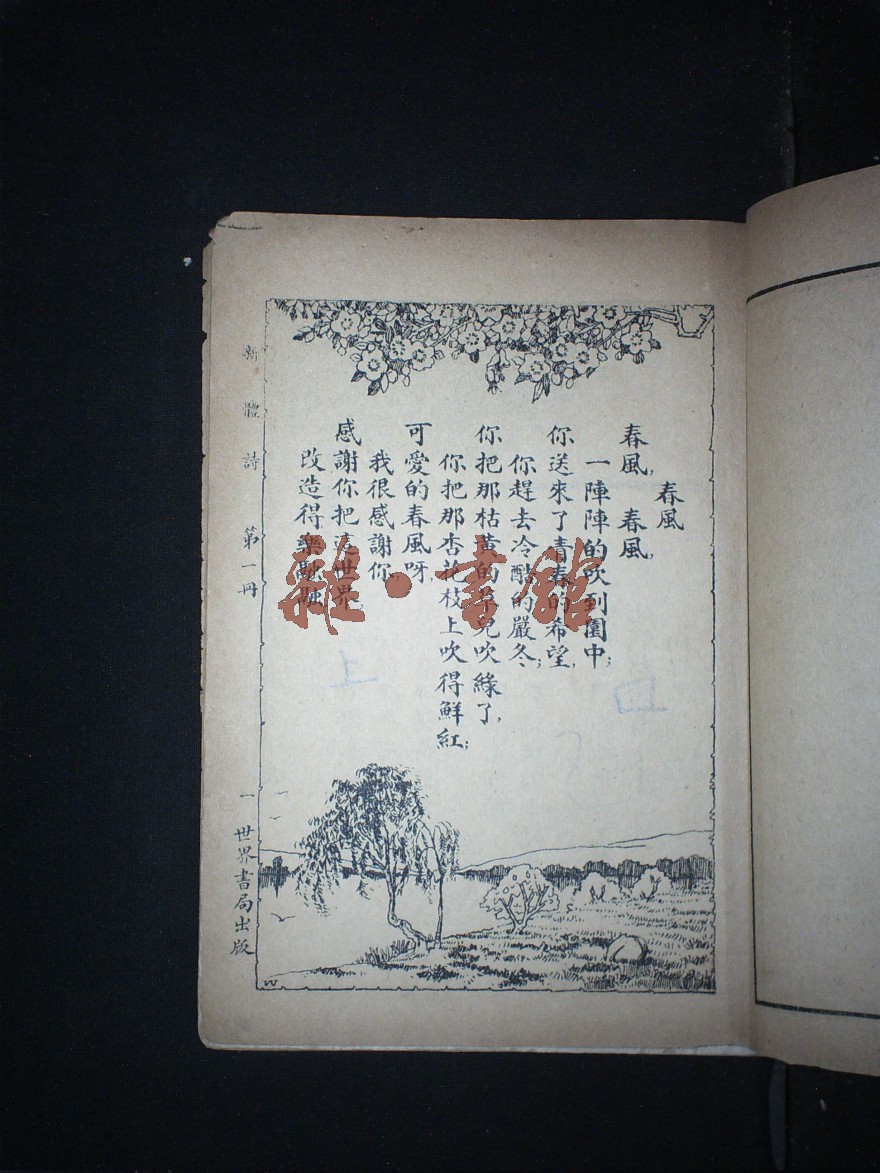 春風
春風，春風，
一陣陣的吹到園中；
你送來了青春的希望，
你趕去冷酷的嚴冬；
你把那枯黃的草兒吹綠了，
你把那杏花枝上吹得鮮紅；
可愛的春風呀，
我很感謝你，
感謝你把這世界，
改造得樂融融
新體詩 第一冊
一
世界書局出版
雜·書館
上
W